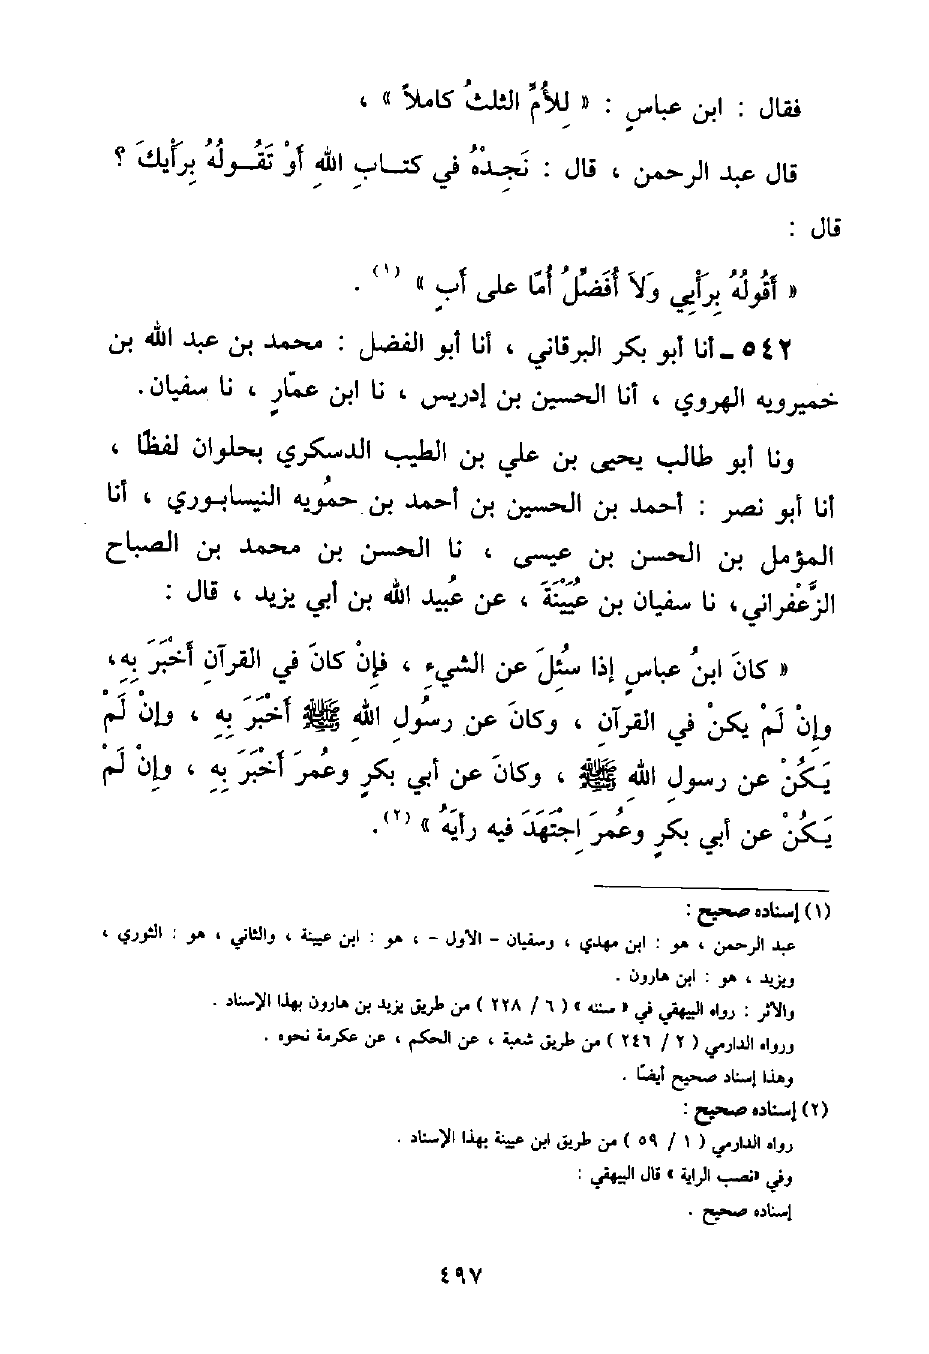 فقال : ابن عباسٍ : « لِلأُمِّ الثلثُ كاملاً » ،
قال عبد الرحمن ، قال : نَجِدْهُ في كتابِ اللهِ أَوْ تَقُولُهُ بِرَأْيِكَ ؟
قال :
« أَقُولُهُ بِرَأْيِي وَلاَ أُفَضِّلُ أُمًّا على أَبٍ » (١) .
٥٤٢ ـ أنا أبو بكر البرقاني ، أنا أبو الفضل : محمد بن عبد الله بن
خميرويه الهروي ، أنا الحسين بن إدريس ، نا ابن عمّارٍ ، نا سفيان.
ونا أبو طالب يحيى بن علي بن الطيب الدسكري بحلوان لفظًا ،
أنا أبو نصر : أحمد بن الحسين بن أحمد بن حمُويه النيسابوري ، أنا
المؤمل بن الحسن بن عيسى ، نا الحسن بن محمد بن الصباح
الزَّعْفراني، نا سفيان بن عُيَيْنَةَ ، عن عُبيد الله بن أبي يزيد ، قال :
« كانَ ابنُ عباسٍ إذا سُئِلَ عن الشيءِ ، فإِنْ كانَ في القرآنِ أَخْبَرَ بِهِ،
وإِنْ لَمْ يكنْ في القرآنِ ، وكانَ عن رسُولِ اللهِ ﷺ أَخْبَرَ بِهِ ، وإِنْ لَمْ
يَكُنْ عن رسولِ اللهِ ﷺ ، وكانَ عن أبي بكرٍ وعُمرَ أَخْبَرَ بِهِ ، وإِنْ لَمْ
يَكُنْ عن أبي بكرٍ وعُمرَ اِجْتَهَدَ فيه رأيَهُ » (٢).
(١) إسناده صحيح :
عبد الرحمن ، هو : ابن مهدي ، وسفيان - الأول - ، هو : ابن عيينة ، والثاني ، هو : الثوري ،
ويزيد ، هو : ابن هارون .
والأثر : رواه البيهقي في « سننه » ( ٦ / ٢٢٨ ) من طريق يزيد بن هارون بهذا الإسناد .
ورواه الدارمي ( ٢ / ٢٤٦ ) من طريق شعبة ، عن الحكم ، عن عكرمة نحوه .
وهذا إسناد صحيح أيضًا .
(٢) إسناده صحيح :
رواه الدارمي ( ١ / ٥٩ ) من طريق ابن عيينة بهذا الإسناد .
وفي «نصب الراية » قال البيهقي :
إسناده صحيح .
٤٩٧